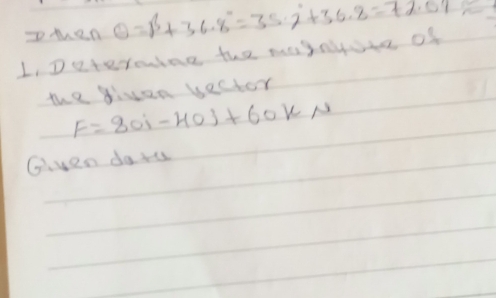 ⇒ then θ = β + 36.8° = 35.2° + 36.8 = 72.07 ≈
1. Determine the magnitute of
the given vector
F = 80i - 40j + 60k N
Given data